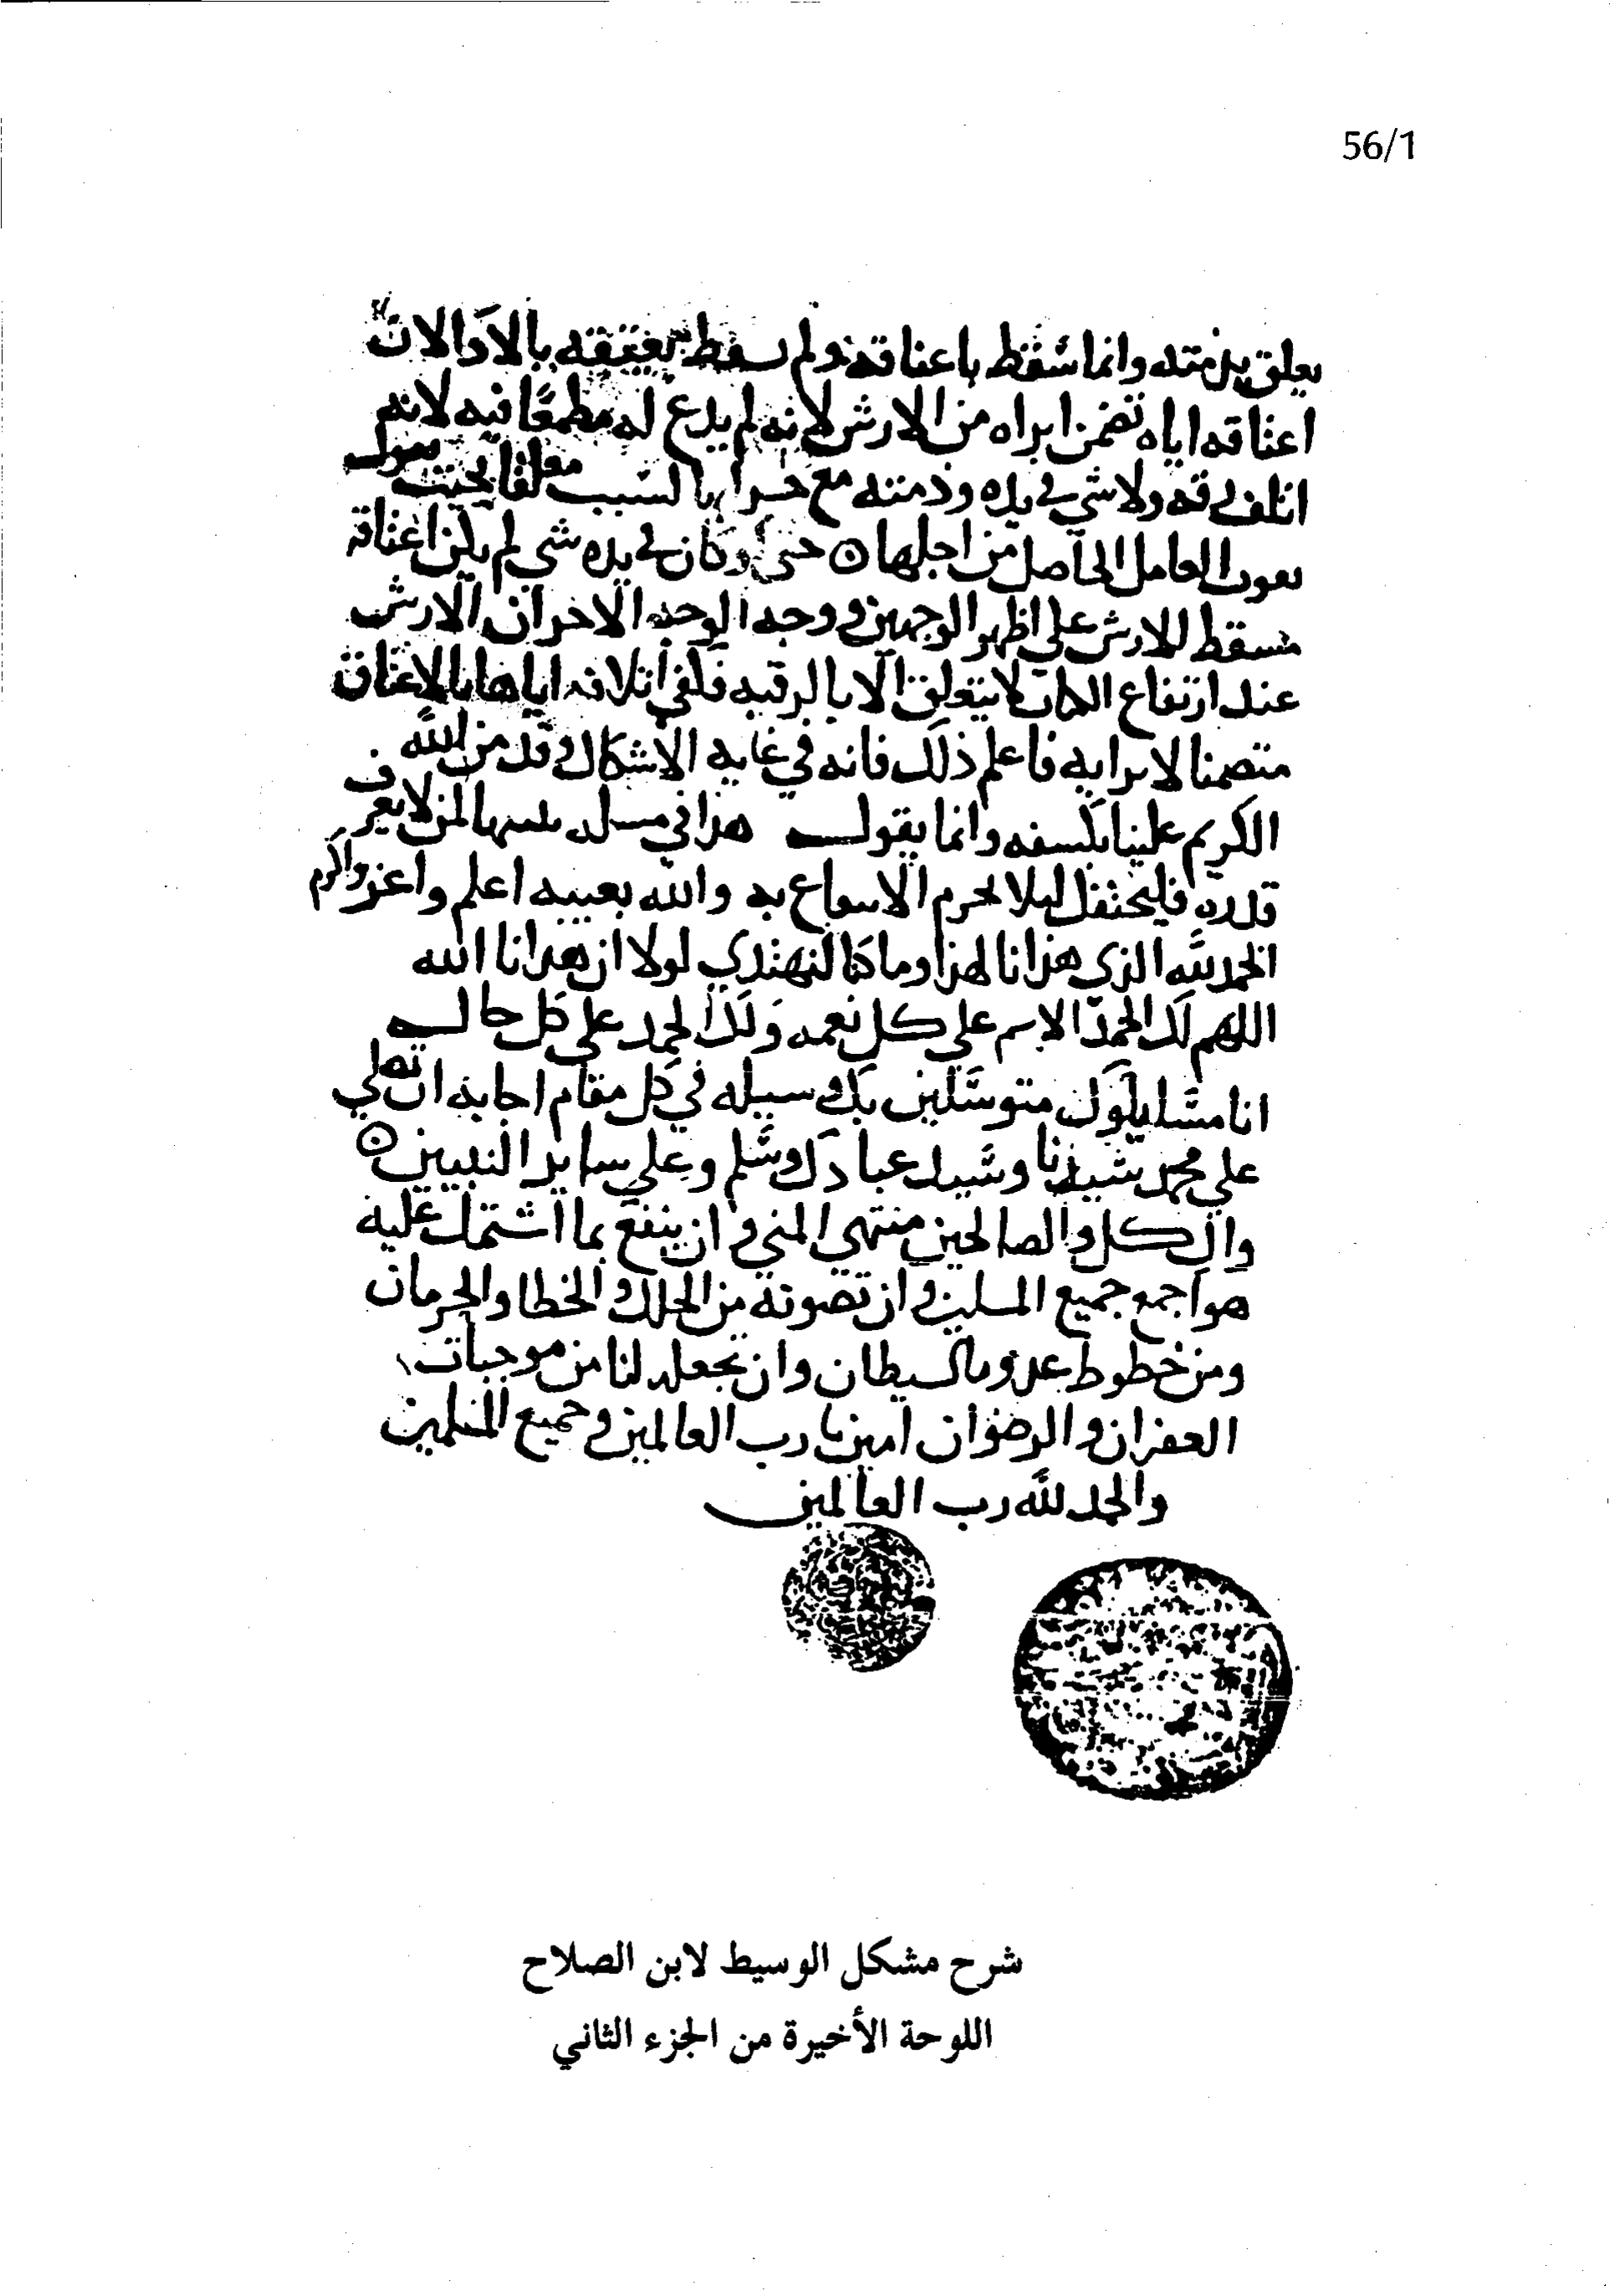 56/1
يعلق بذمته وانما سقط باعتاقه ولم يسقط بعتقه بالاداء لان
اعتاقه اياه تضمن ابراه من الارش لانه لم يدع له مطمعا فيه لانه
اتلف رقه ولا شي في يده وذمته مع بالسبب معلقا بحيث
العامل الحاصل من اجلها حتى لو كان في يده شي لم يكن اعتاقه
مسقط للارش على اظهر الوجهين ووجه الوجه الاخر ان الارش
عند ارتفاع الكتابة لا يتعلق الا بالرقبه فكفى اتلافه اياها بالاعتاق
متضمنا لابرايه فاعلم ذلك فانه في غايه الاشكال وقد من الله
الكريم علينا بكشفه وانما يقول هذا في لمن لا يعرف
قدره فليحتفل ليلا يحرم الانتفاع به والله بغيبه اعلم واعز واكرم
الحمد لله الذي هدانا لهذا وما كنا لنهتدي لولا ان هدانا الله
اللهم لك الحمد الاتم على كل نعمه ولك الحمد على كل حال
انا متوسلين بك وسيله في كل مقام اجابه ان تصلي
على محمد سيدنا وسيد عبادك وسلم وعلى ساير النبيين
وال كل والصالحين منتهى المنى وان ينفع بما اشتمل عليه
هو اجمع جميع المسلمين وان تصونه من الخلل والخطا والحرمان
ومن خطوط الشيطان وان تجعله لنا من موجبات
الغفران والرضوان امين يا رب العالمين وجميع المسلمين
والحمد لله رب العالمين
شرح مشكل الوسيط لابن الصلاح
اللوحة الأخيرة من الجزء الثاني